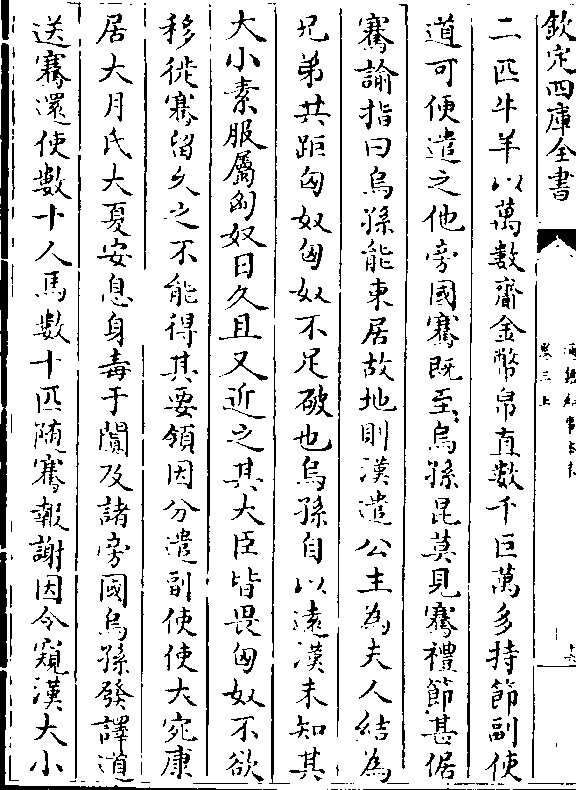 欽定四庫全書
卷三上
二匹牛羊以萬數齎金幣帛直數千巨萬多持節副使
道可便遣之他旁國騫既至烏孫昆莫見騫禮節甚倨
騫諭指曰烏孫能東居故地則漢遣公主為夫人結為
兄弟共距匈奴匈奴不足破也烏孫自以遠漢未知其
大小素服屬匈奴日久且又近之其大臣皆畏匈奴不欲
移徙騫留久之不能得其要領因分遣副使使大宛康
居大月氏大夏安息身毒于闐及諸旁國烏孫發譯道
送騫還使數十人馬數十匹隨騫報謝因令窺漢大小